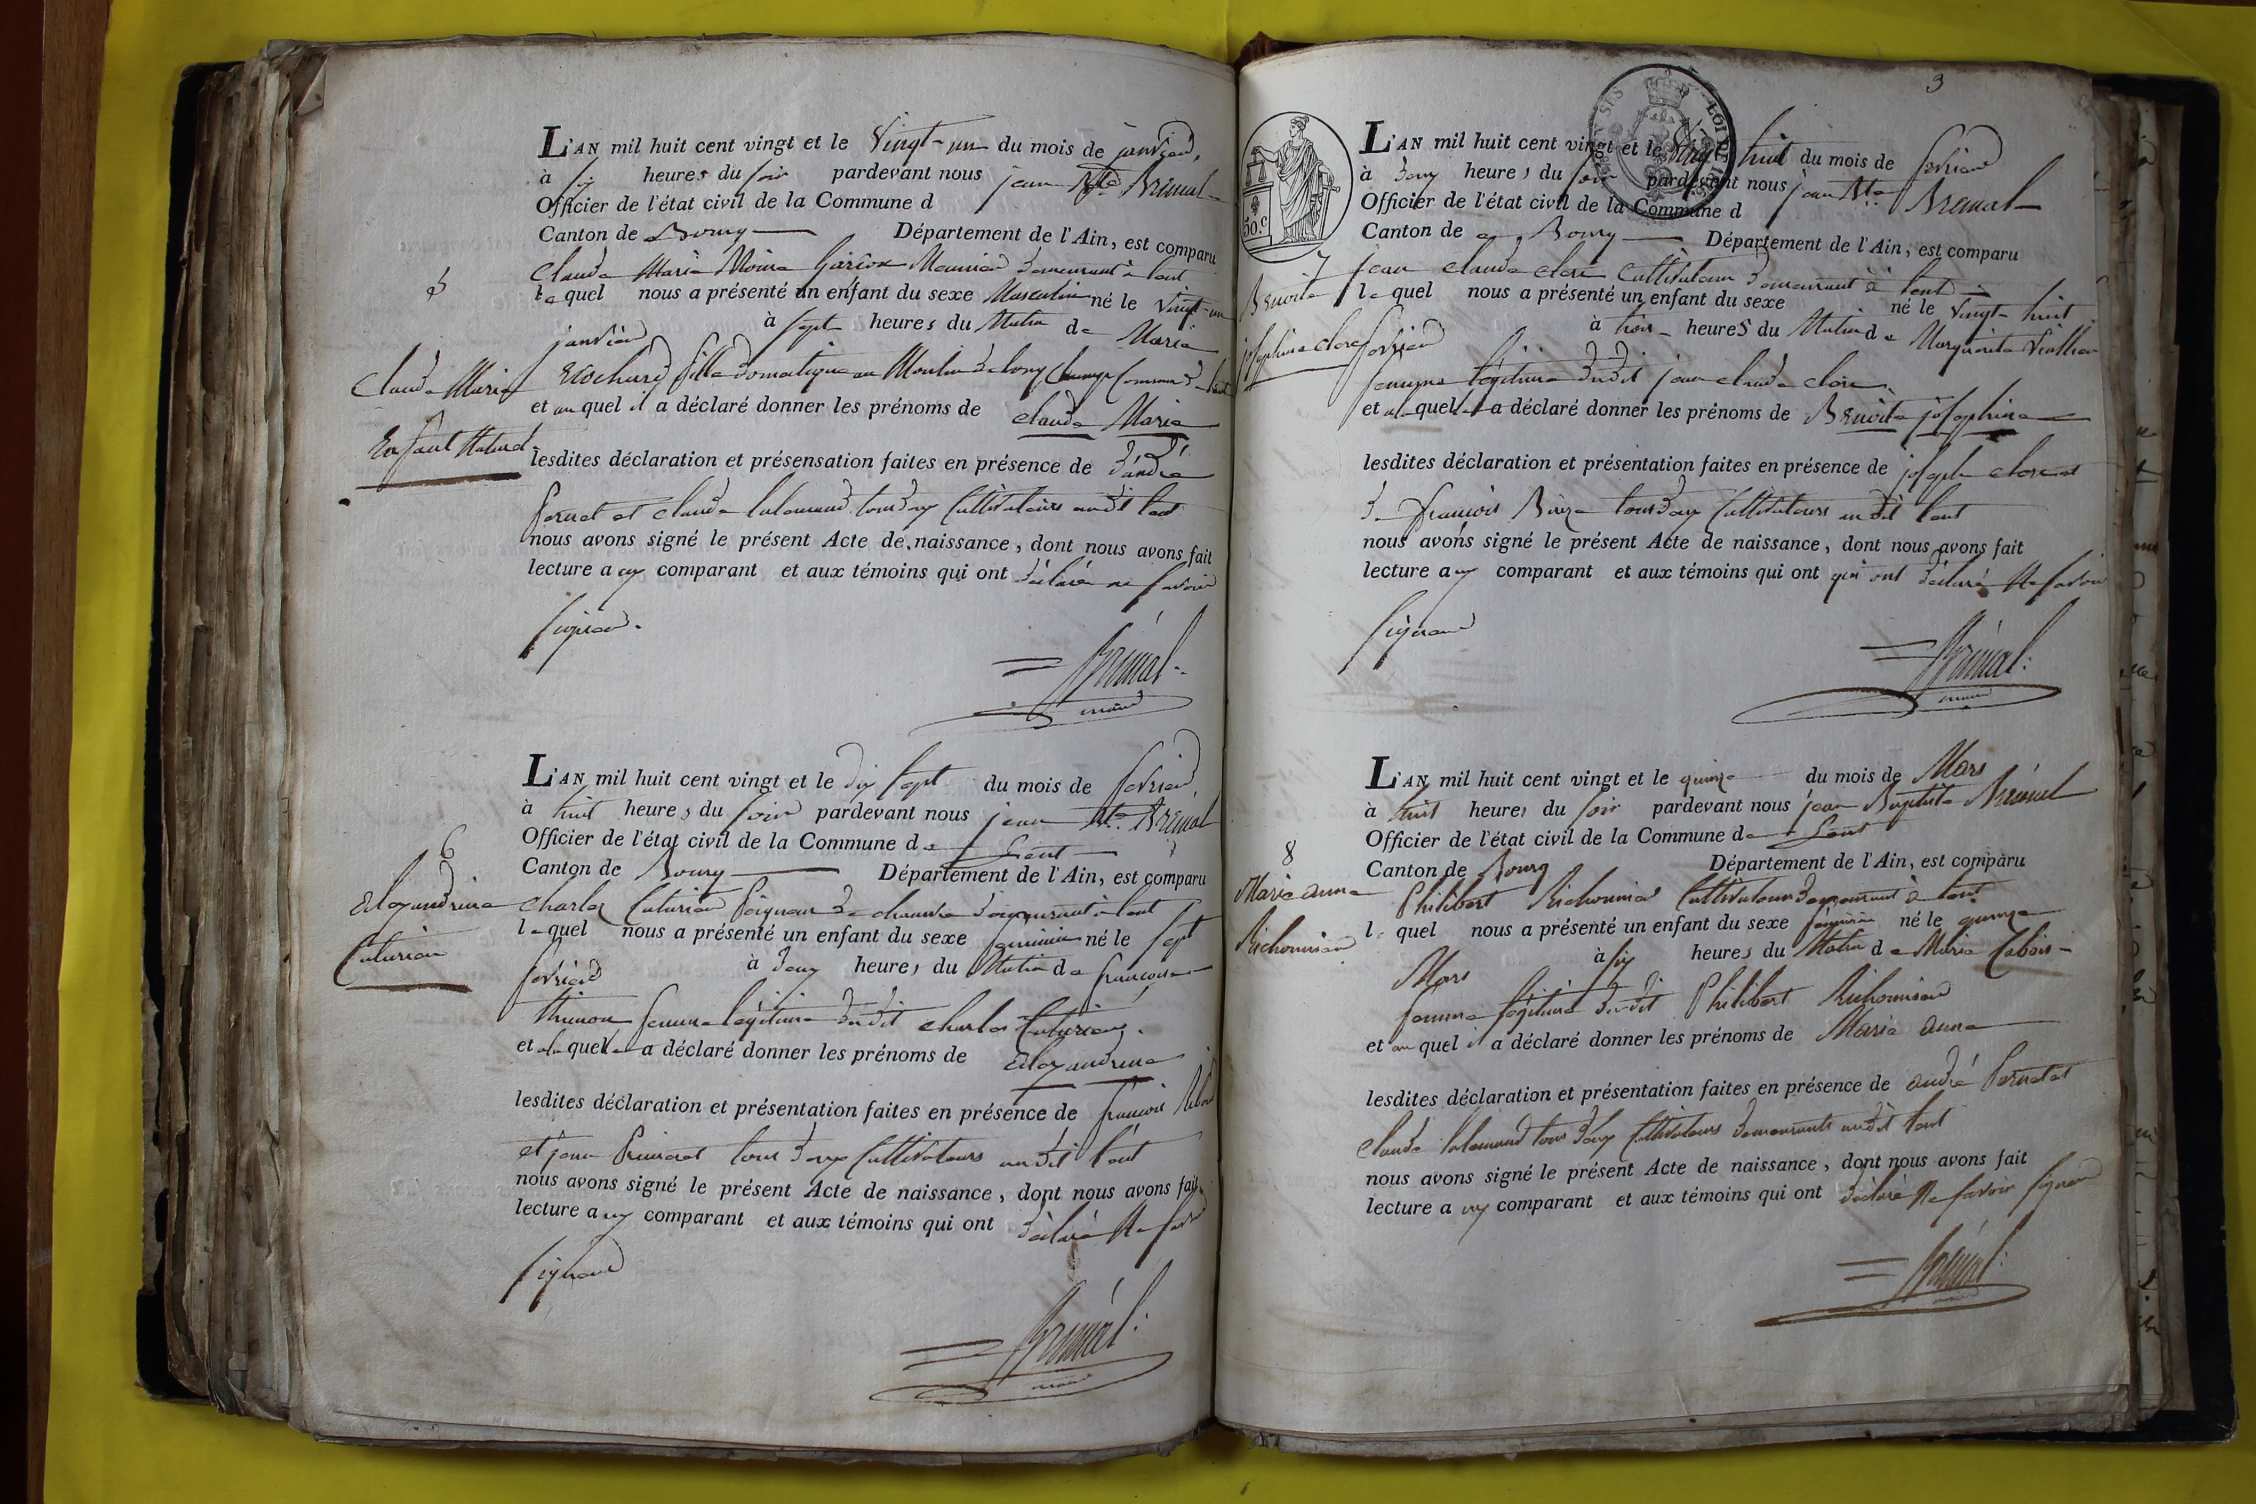 L'AN mil huit cent vingt et le Vingt-un du mois de janvier,
à six heures du soir pardevant nous jean Bte. Brénal
Officier de l'état civil de la Commune d
Canton de Bourg Département de l'Ain, est comparu
5
Claude Marie Meunier demeurant à lent
le quel nous a présenté un enfant du sexe Masculin né le Vingt-un
janvier à sept heures du Matin de Marie
Claude Marie
fille domestique au Moulin de long champ Commune de lent
et au quel il a déclaré donner les prénoms de Claude Marie
Enfant Naturel
lesdites déclaration et présensation faites en présence de d'andré
Pernet et Claude lalemand tous deux Cultivateurs audit lent
nous avons signé le présent Acte de naissance, dont nous avons fait
lecture aux comparant et aux témoins qui ont déclaré ne savoir
signer.
Brénal
maire
L'AN mil huit cent vingt et le dix sept du mois de fevrier,
à huit heures du soir pardevant nous jean Bte. Brénal
Officier de l'état civil de la Commune de Lent
6
Canton de Bourg Département de l'Ain, est comparu
Alexandrine
Cuturier
Charles Cuturier Peigneur de chanvre demeurant à lent
le quel nous a présenté un enfant du sexe feminin né le sept
fevrier à deux heures du Matin de françoise
femme légitime dudit Charles Cuturier.
et a la quelle a déclaré donner les prénoms de Alexandrine
lesdites déclaration et présentation faites en présence de françois
et jean tous deux Cultivateurs audit lent
nous avons signé le présent Acte de naissance, dont nous avons fait
lecture aux comparant et aux témoins qui ont déclaré Ne savoir
signer
Brénal
maire
3
50.c
L'AN mil huit cent vingt et le Vingt huit du mois de fevrier
à deux heures du soir pardevant nous jean Bte. Brénal
Officier de l'état civil de la Commune d
Canton de Bourg Département de l'Ain, est comparu
7
Benoite
josephine Clerc
jean Claude Clerc Cultivateur demeurant à lent
le quel nous a présenté un enfant du sexe né le Vingt huit
fevrier à trois heures du Matin de Marguerite
femme légitime dudit jean Claude Clerc.
et a la quelle a déclaré donner les prénoms de Benoite josephine
lesdites déclaration et présentation faites en présence de joseph Clerc et
de françois tous deux Cultivateurs audit lent
nous avons signé le présent Acte de naissance, dont nous avons fait
lecture aux comparant et aux témoins qui ont qui ont déclaré Ne savoir
signer
Brénal
maire
L'AN mil huit cent vingt et le quinze du mois de Mars
à huit heures du soir pardevant nous jean Baptiste Brénal
Officier de l'état civil de la Commune de Lent
8
Canton de Bourg Département de l'Ain, est comparu
Marie anne
Richonnier
Philibert Richonnier Cultivateur demeurant à lent
le quel nous a présenté un enfant du sexe féminin né le quinze
Mars à six heures du Matin de Marie
femme légitime dudit Philibert Richonnier
et au quel il a déclaré donner les prénoms de Marie anne
lesdites déclaration et présentation faites en présence de andré Pernet et
Claude lalemand tous deux Cultivateurs demeurants audit lent
nous avons signé le présent Acte de naissance, dont nous avons fait
lecture aux comparant et aux témoins qui ont déclaré Ne savoir signer
Brénal